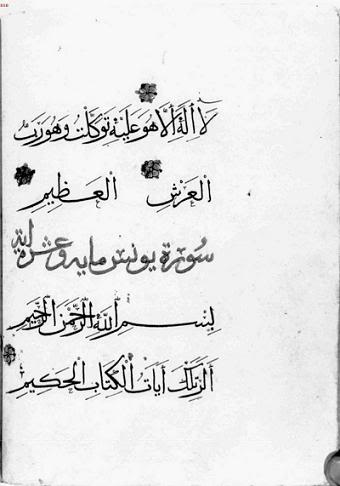 لا اله الا هو عليه توكلت وهو رب
العرش العظيم
سورة يونس مايه وعشر اية
بسم الله الرحمن الرحيم
الر تلك آيات الكتاب الحكيم